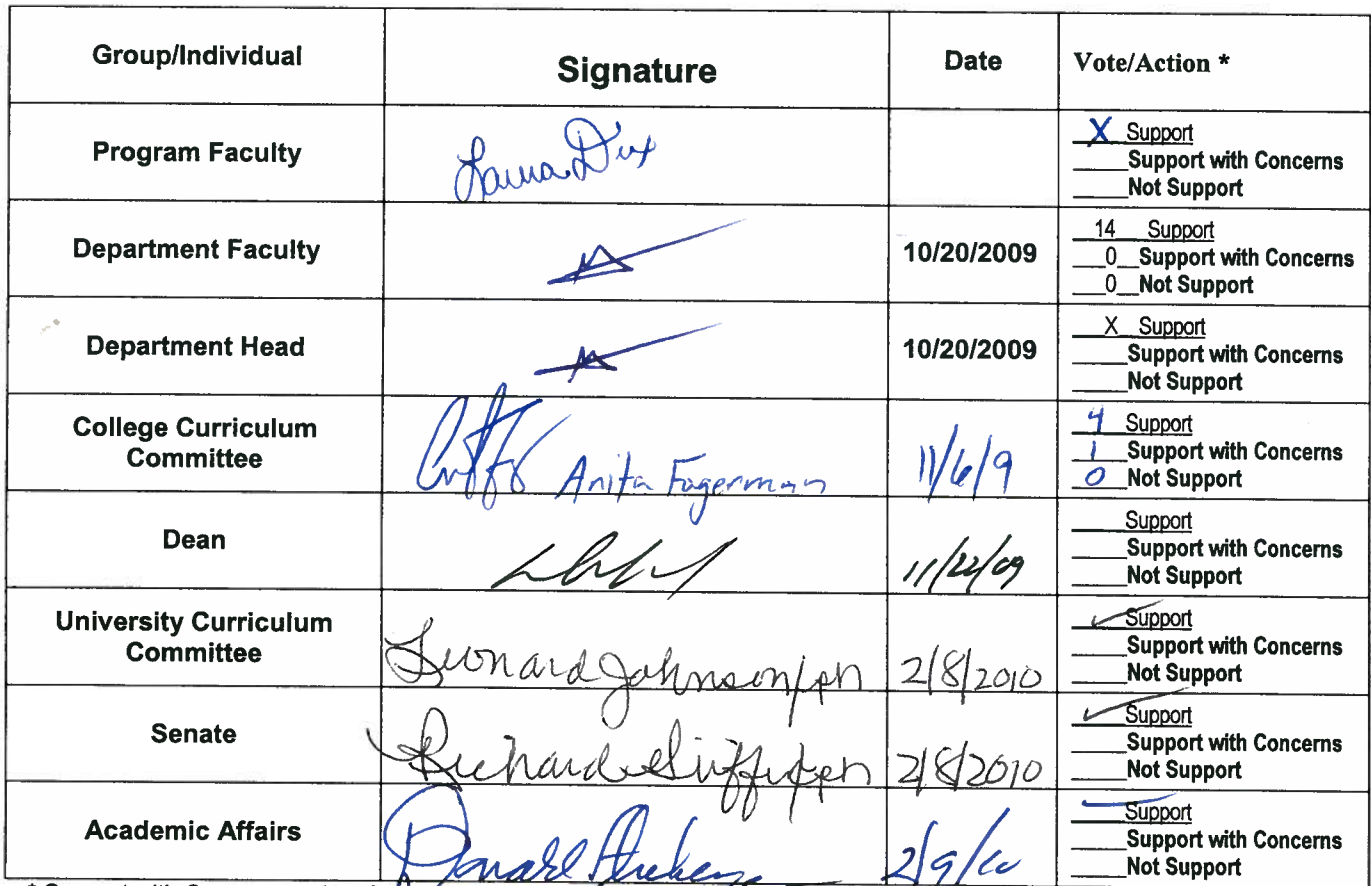 Group/Individual Signature Date Vote/Action *
Program Faculty Laura Dix X Support
Support with Concerns
Not Support
Department Faculty 10/20/2009 14 Support
0 Support with Concerns
0 Not Support
Department Head 10/20/2009 X Support
Support with Concerns
Not Support
College Curriculum
Committee Anita Fagerman 11/6/9 4 Support
1 Support with Concerns
0 Not Support
Dean 11/22/09 Support
Support with Concerns
Not Support
University Curriculum
Committee Leonard Johnson/ph 2/8/2010 ✓ Support
Support with Concerns
Not Support
Senate Richard Griffin/ph 2/8/2010 ✓ Support
Support with Concerns
Not Support
Academic Affairs 2/9/10 Support
Support with Concerns
Not Support